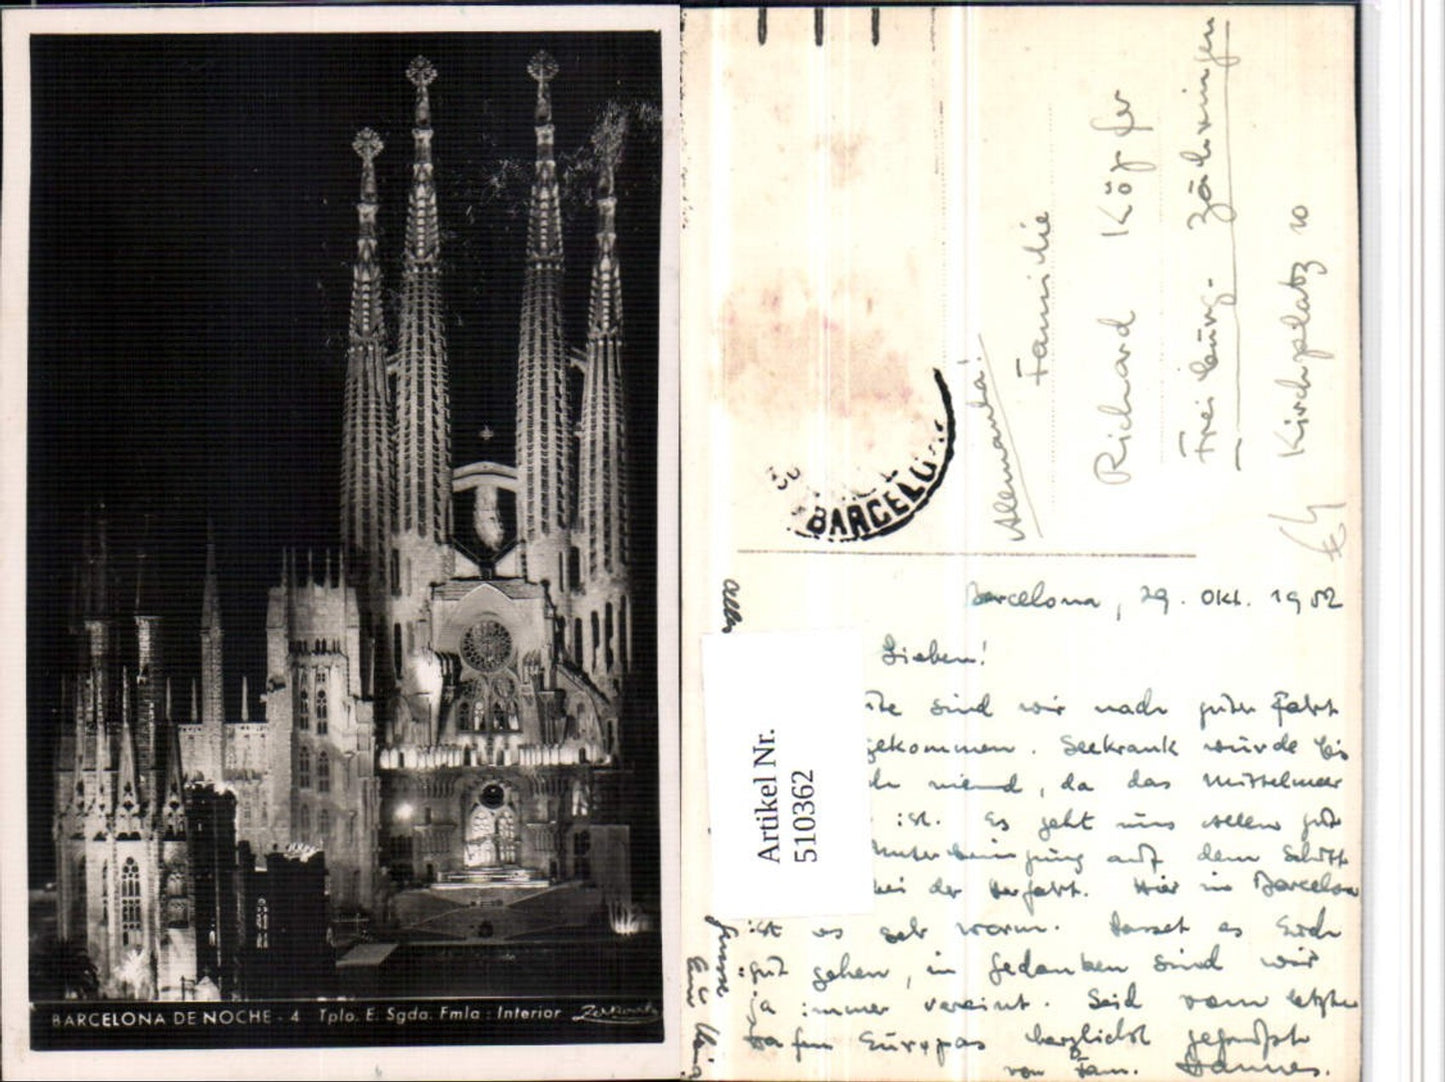 BARCELONA DE NOCHE - 4 Tplo. E. Sgda. Fmla : Interior Zerkowitz
BARCELO
Alemania!
Familie
Richard Köpfer
Freiburg - Zähringen
Kirchplatz 10
Artikel Nr.
510362
Barcelona, 29. Okt. 1952
Lieben!
sind wir nach guter Fahrt
gekommen. Seekrank wurde bis
niemd, da das Mittelmeer
ist. Es geht uns allen gut
Unterbringung auf dem Schiff
bei der Herfahrt. Hier in Barcelona
ist es sehr warm. Lasset es Euch
gut gehen, in Gedanken sind wir
ja immer vereint. Seid vom letzten
Hafen Europas herzlichst gegrüsst
von Fam. Hannes.